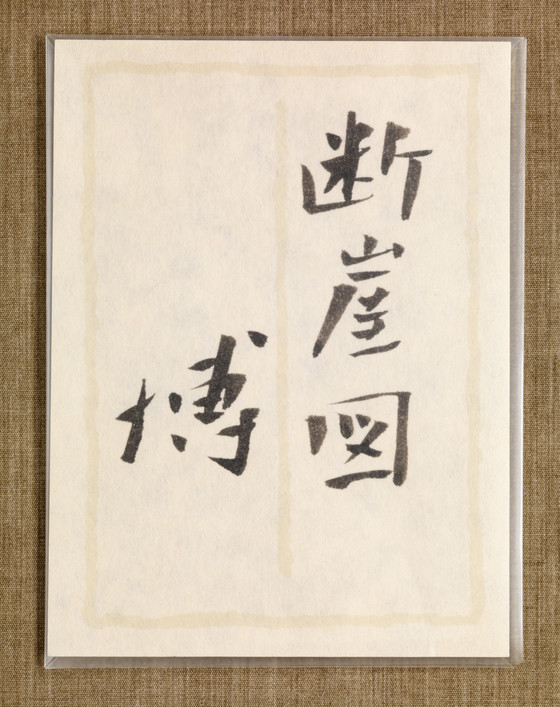 断崖図
博